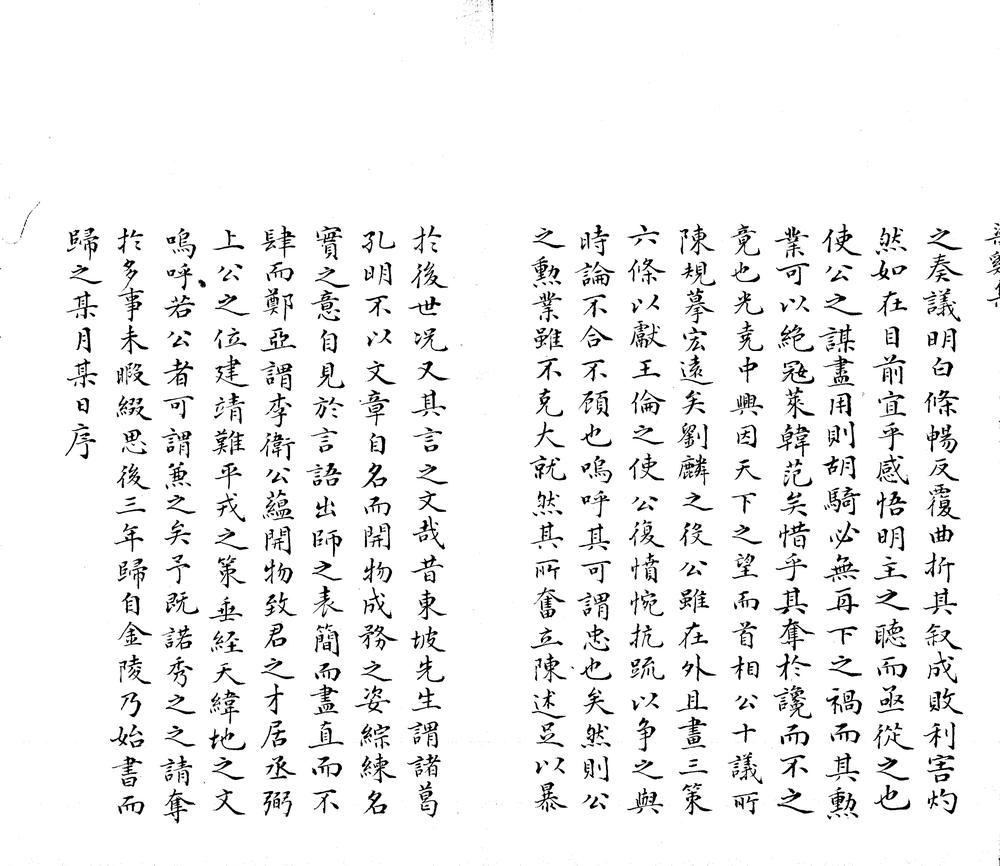 梁谿集
之奏議明白條暢反覆曲折其叙成敗利害灼
然如在目前宜乎感悟明主之聽而亟從之也
使公之謀盡用則胡騎必無再下之禍而其勲
業可以絶冦萊韓范矣惜乎其奪於讒而不之
竟也光堯中興因天下之望而首相公十議所
陳規摹宏遠矣劉麟之役公雖在外且畫三策
六條以獻王倫之使公復憤惋抗疏以争之與
時論不合不顧也嗚呼其可謂忠也矣然則公
之勲業雖不克大就然其所奮立陳述足以暴
於後世况又其言之文哉昔東坡先生謂諸葛
孔明不以文章自名而開物成務之姿綜練名
實之意自見於言語出師之表簡而盡直而不
肆而鄭亞謂李衛公蘊開物致君之才居丞弼
上公之位建靖難平戎之策垂經天緯地之文
嗚呼若公者可謂兼之矣予既諾秀之之請奪
於多事未暇綴思後三年歸自金陵乃始書而
歸之某月某日序